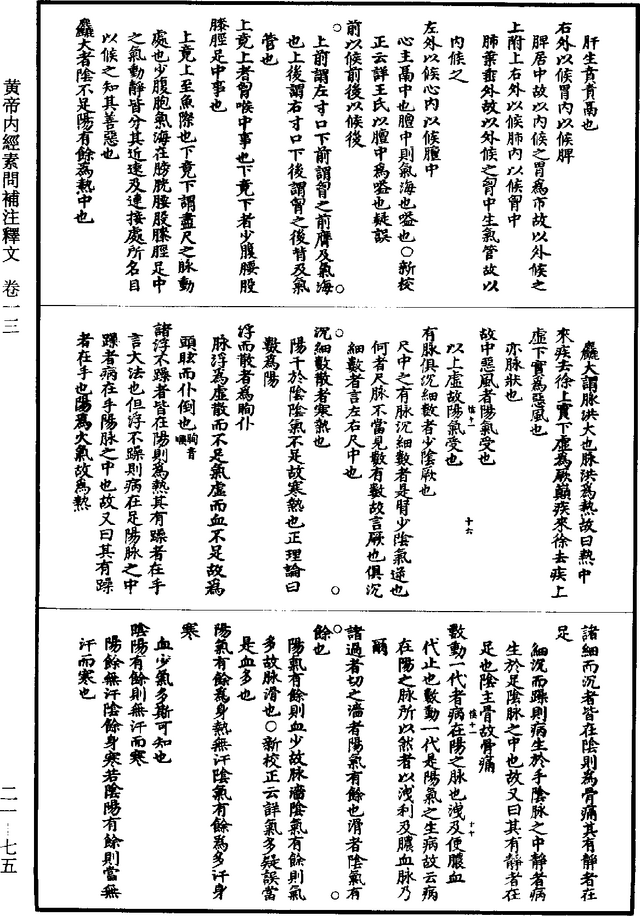 黄帝内經素問補注釋文 卷一三
二一—七五
肝生賁賁鬲也
右外以候胃内以候脾
脾居中故以内候之胃爲市故以外候之
上附上右外以候肺内以候胷中
肺葉垂外故以外候之胷中主氣管故以
内候之
左外以候心内以候膻中
心主鬲中也膻中則氣海也嗌也○新校
正云詳王氏以膻中爲嗌也疑誤
前以候前後以候後
上前謂左寸口下前謂胷之前膺及氣海
也上後謂右寸口下後謂胷之後背及氣
管也
上竟上者胷喉中事也下竟下者少腹腰股
膝脛足中事也
上竟上至魚際也下竟下謂盡尺之脉動
處也少腹胞氣海在膀胱腰股膝脛足中
之氣動靜皆分其近遠及連接處所名目
以候之知其善惡也
麤大者陰不足陽有餘爲熱中也
麤大謂脉洪大也脉洪爲熱故曰熱中
來疾去徐上實下虛爲厥巔疾來徐去疾上
虛下實爲惡風也
亦脉狀也
故中惡風者陽氣受也
以上虛故陽氣受也
十六
有脉俱沉細數者少陰厥也
尺中之有脉沉細數者是腎少陰氣逆也
何者尺脉不當見數有數故言厥也俱沉
細數者言左右尺中也
沉細數散者寒熱也
陽干於陰陰氣不足故寒熱也正理論曰
數爲陽
浮而散者爲眴仆
脉浮爲虛散而不足氣虛而血不足故爲
頭眩而仆倒也
諸浮不躁者皆在陽則爲熱其有躁者在手
言大法也但浮不躁則病在足陽脉之中
躁者病在手陽脉之中也故又曰其有躁
者在手也陽爲火氣故爲熱
諸細而沉者皆在陰則爲骨痛其有靜者在
足
細沉而躁則病生於手陰脉之中靜者病
生於足陰脉之中也故又曰其有靜者在
足也陰主骨故骨痛
數動一代者病在陽之脉也洩及便膿血
代止也數動一代是陽氣之生病故云病
在陽之脉所以然者以洩利及膿血脉乃
爾
諸過者切之濇者陽氣有餘也滑者陰氣有
餘也
陽氣有餘則血少故脉濇陰氣有餘則氣
多故脉滑也○新校正云詳氣多疑誤當
是血多也
陽氣有餘爲身熱無汗陰氣有餘爲多汗身
寒
血少氣多斯可知也
陰陽有餘則無汗而寒
陽餘無汗陰餘身寒若陰陽有餘則當無
汗而寒也